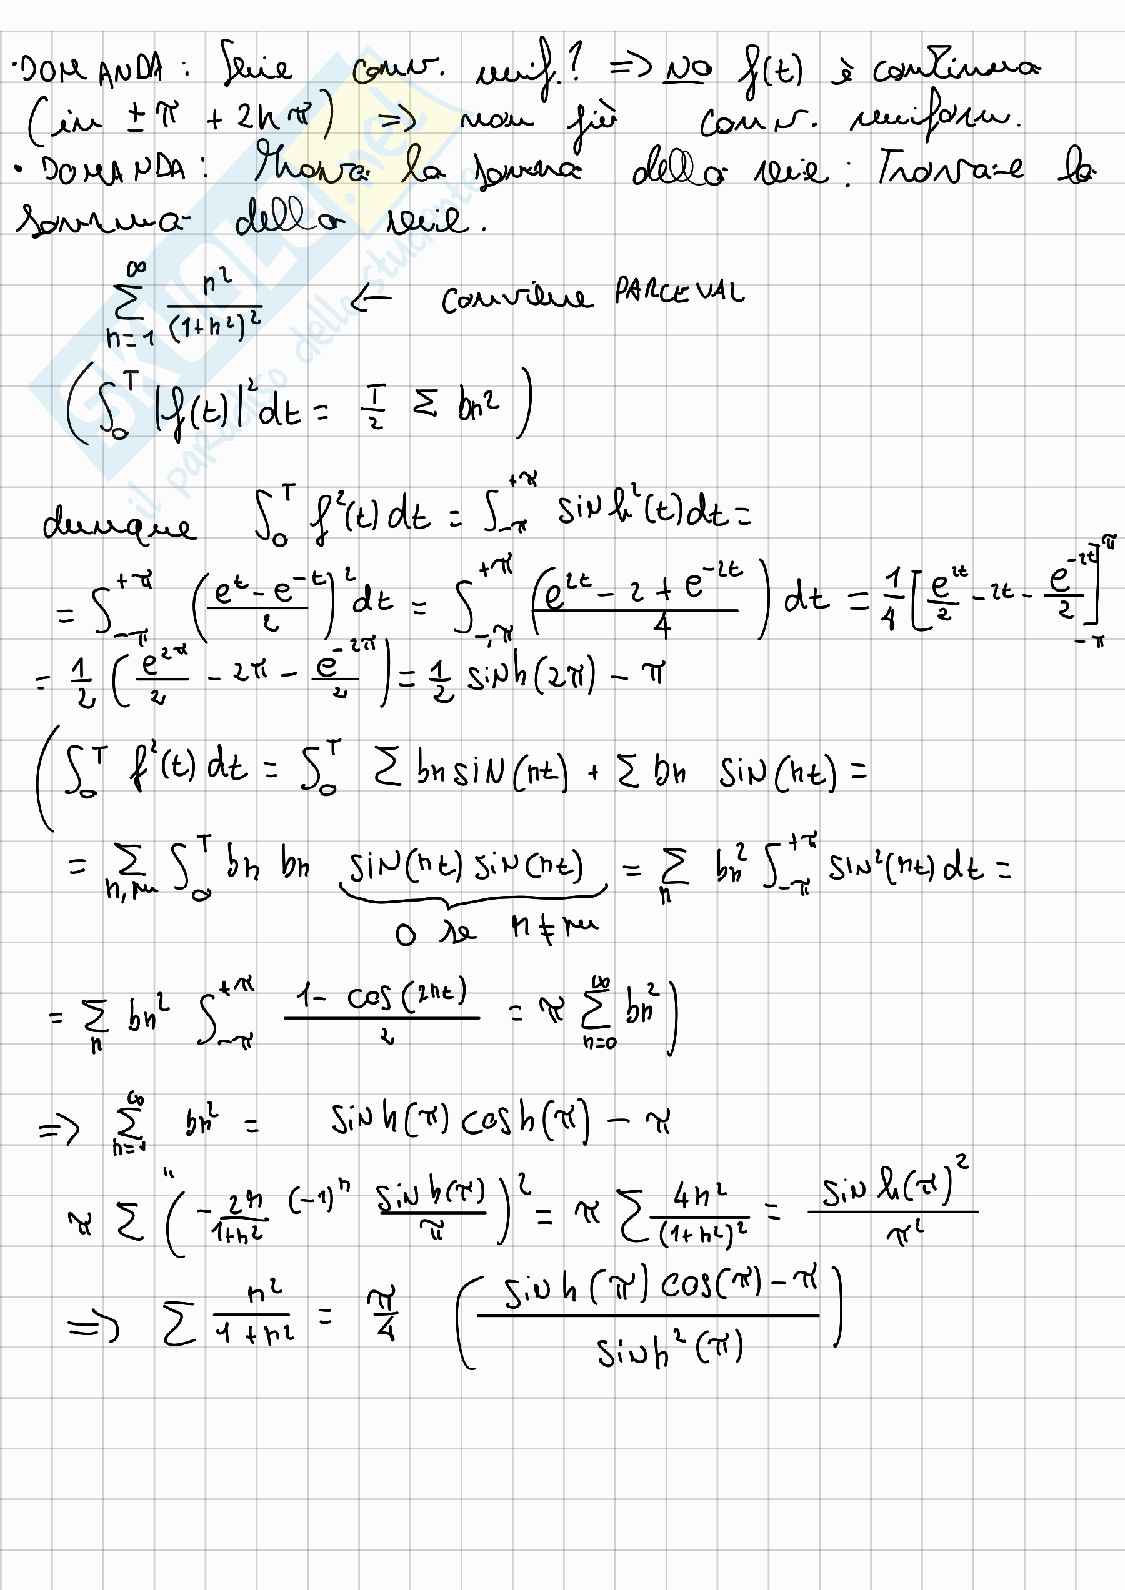 ·DOMANDA: Serie conv. unif.? => NO f(t) è continua
(in ±π + 2kπ) => non fiè conv. uniform.
· DOMANDA: Trova la somma della serie: Trovare la
somma della serie.
∑_{n=1}^{∞} n²/(1+n²)² ← conviene PARCEVAL
(∫_0^T |f(t)|² dt = T/2 ∑ bn²)
dunque ∫_0^T f²(t) dt = ∫_{-π}^{+π} sinh²(t) dt =
= ∫_{-π}^{+π} ((e^t - e^{-t})/2)² dt = ∫_{-π}^{+π} ((e^{2t} - 2 + e^{-2t})/4) dt = 1/4 [e^{2t}/2 - 2t - e^{-2t}/2]_{-π}^{π}
= 1/2 (e^{2π}/2 - 2π - e^{-2π}/2) = 1/2 sinh(2π) - π
(∫_0^T f²(t) dt = ∫_0^T ∑ bn sin(nt) + ∑ bn sin(nt) =
= ∑_{n,m} ∫_0^T bn bn sin(nt) sin(nt) = ∑_n bn² ∫_{-π}^{+π} sin²(nt) dt =
0 se n≠m
= ∑_n bn² ∫_{-π}^{+π} (1 - cos(2nt))/2 = π ∑_{n=0}^{∞} bn²)
=> ∑_{n=1}^{∞} bn² = sinh(π) cosh(π) - π
π ∑ (-2n/(1+n²) (-1)^n sinh(π)/π)² = π ∑ 4n²/(1+n²)² = sinh(π)²/π²
=> ∑ n²/(1+n²) = π/4 ((sinh(π) cos(π) - π)/sinh²(π))
SKUOLA.net
il paradiso dello studente